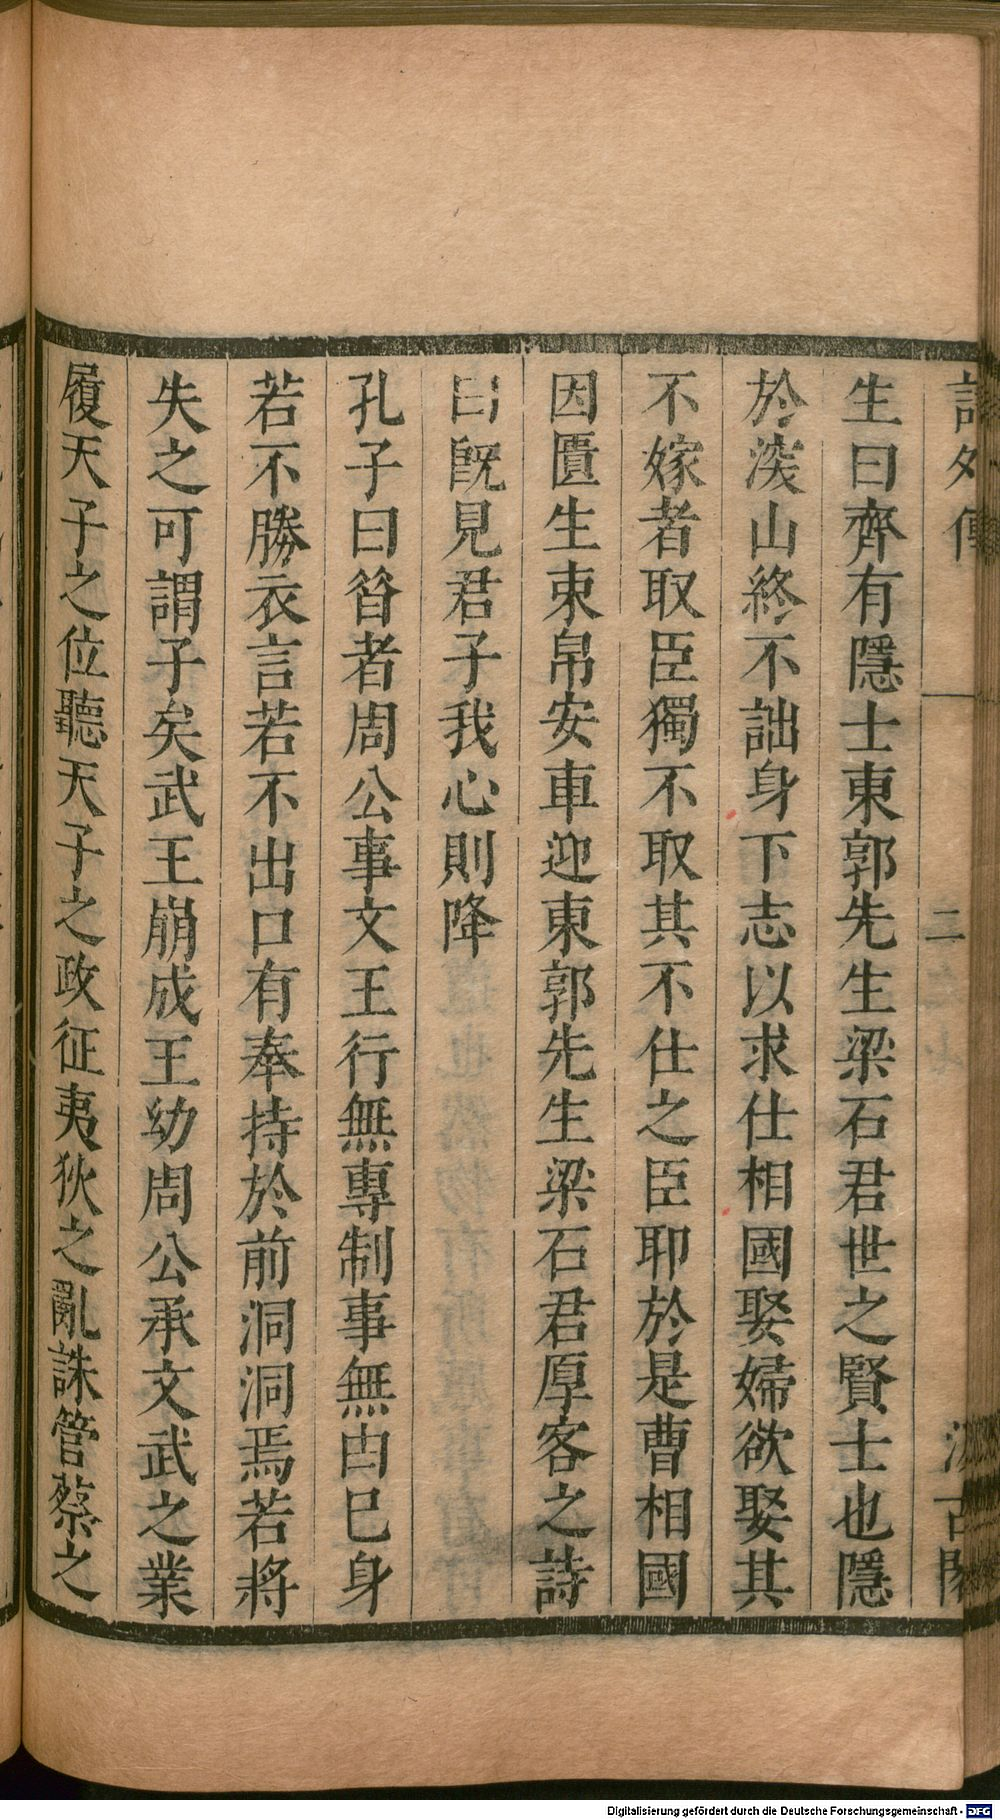 詩外傳
二
汲古閣
生曰齊有隱士東郭先生梁石君世之賢士也隱
於深山終不詘身下志以求仕相國娶婦欲娶其
不嫁者取臣獨不取其不仕之臣耶於是曹相國
因匱生束帛安車迎東郭先生梁石君厚客之詩
曰既見君子我心則降
孔子曰昝者周公事文王行無專制事無由已身
若不勝衣言若不出口有奉持於前洞洞焉若將
失之可謂子矣武王崩成王幼周公承文武之業
履天子之位聽天子之政征夷狄之亂誅管蔡之
Digitalisierung gefördert durch die Deutsche Forschungsgemeinschaft - DFG